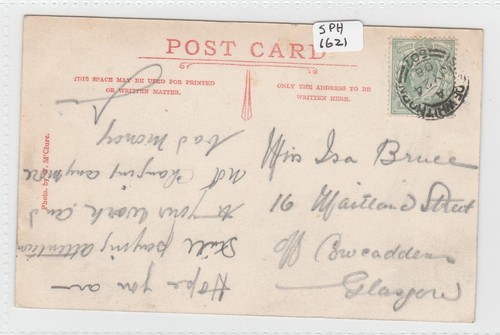 SPH
(62)
POST CARD
THIS SPACE MAY BE USED FOR PRINTED
OR WRITTEN MATTER.
ONLY THE ADDRESS TO BE
WRITTEN HERE.
Photo. by M'Clure.
Hope you are
still paying attention
to your work and
not changing anymore
bad money
Miss Isa Bruce
16 Maitland Street
off Cowcaddens
Glasgow